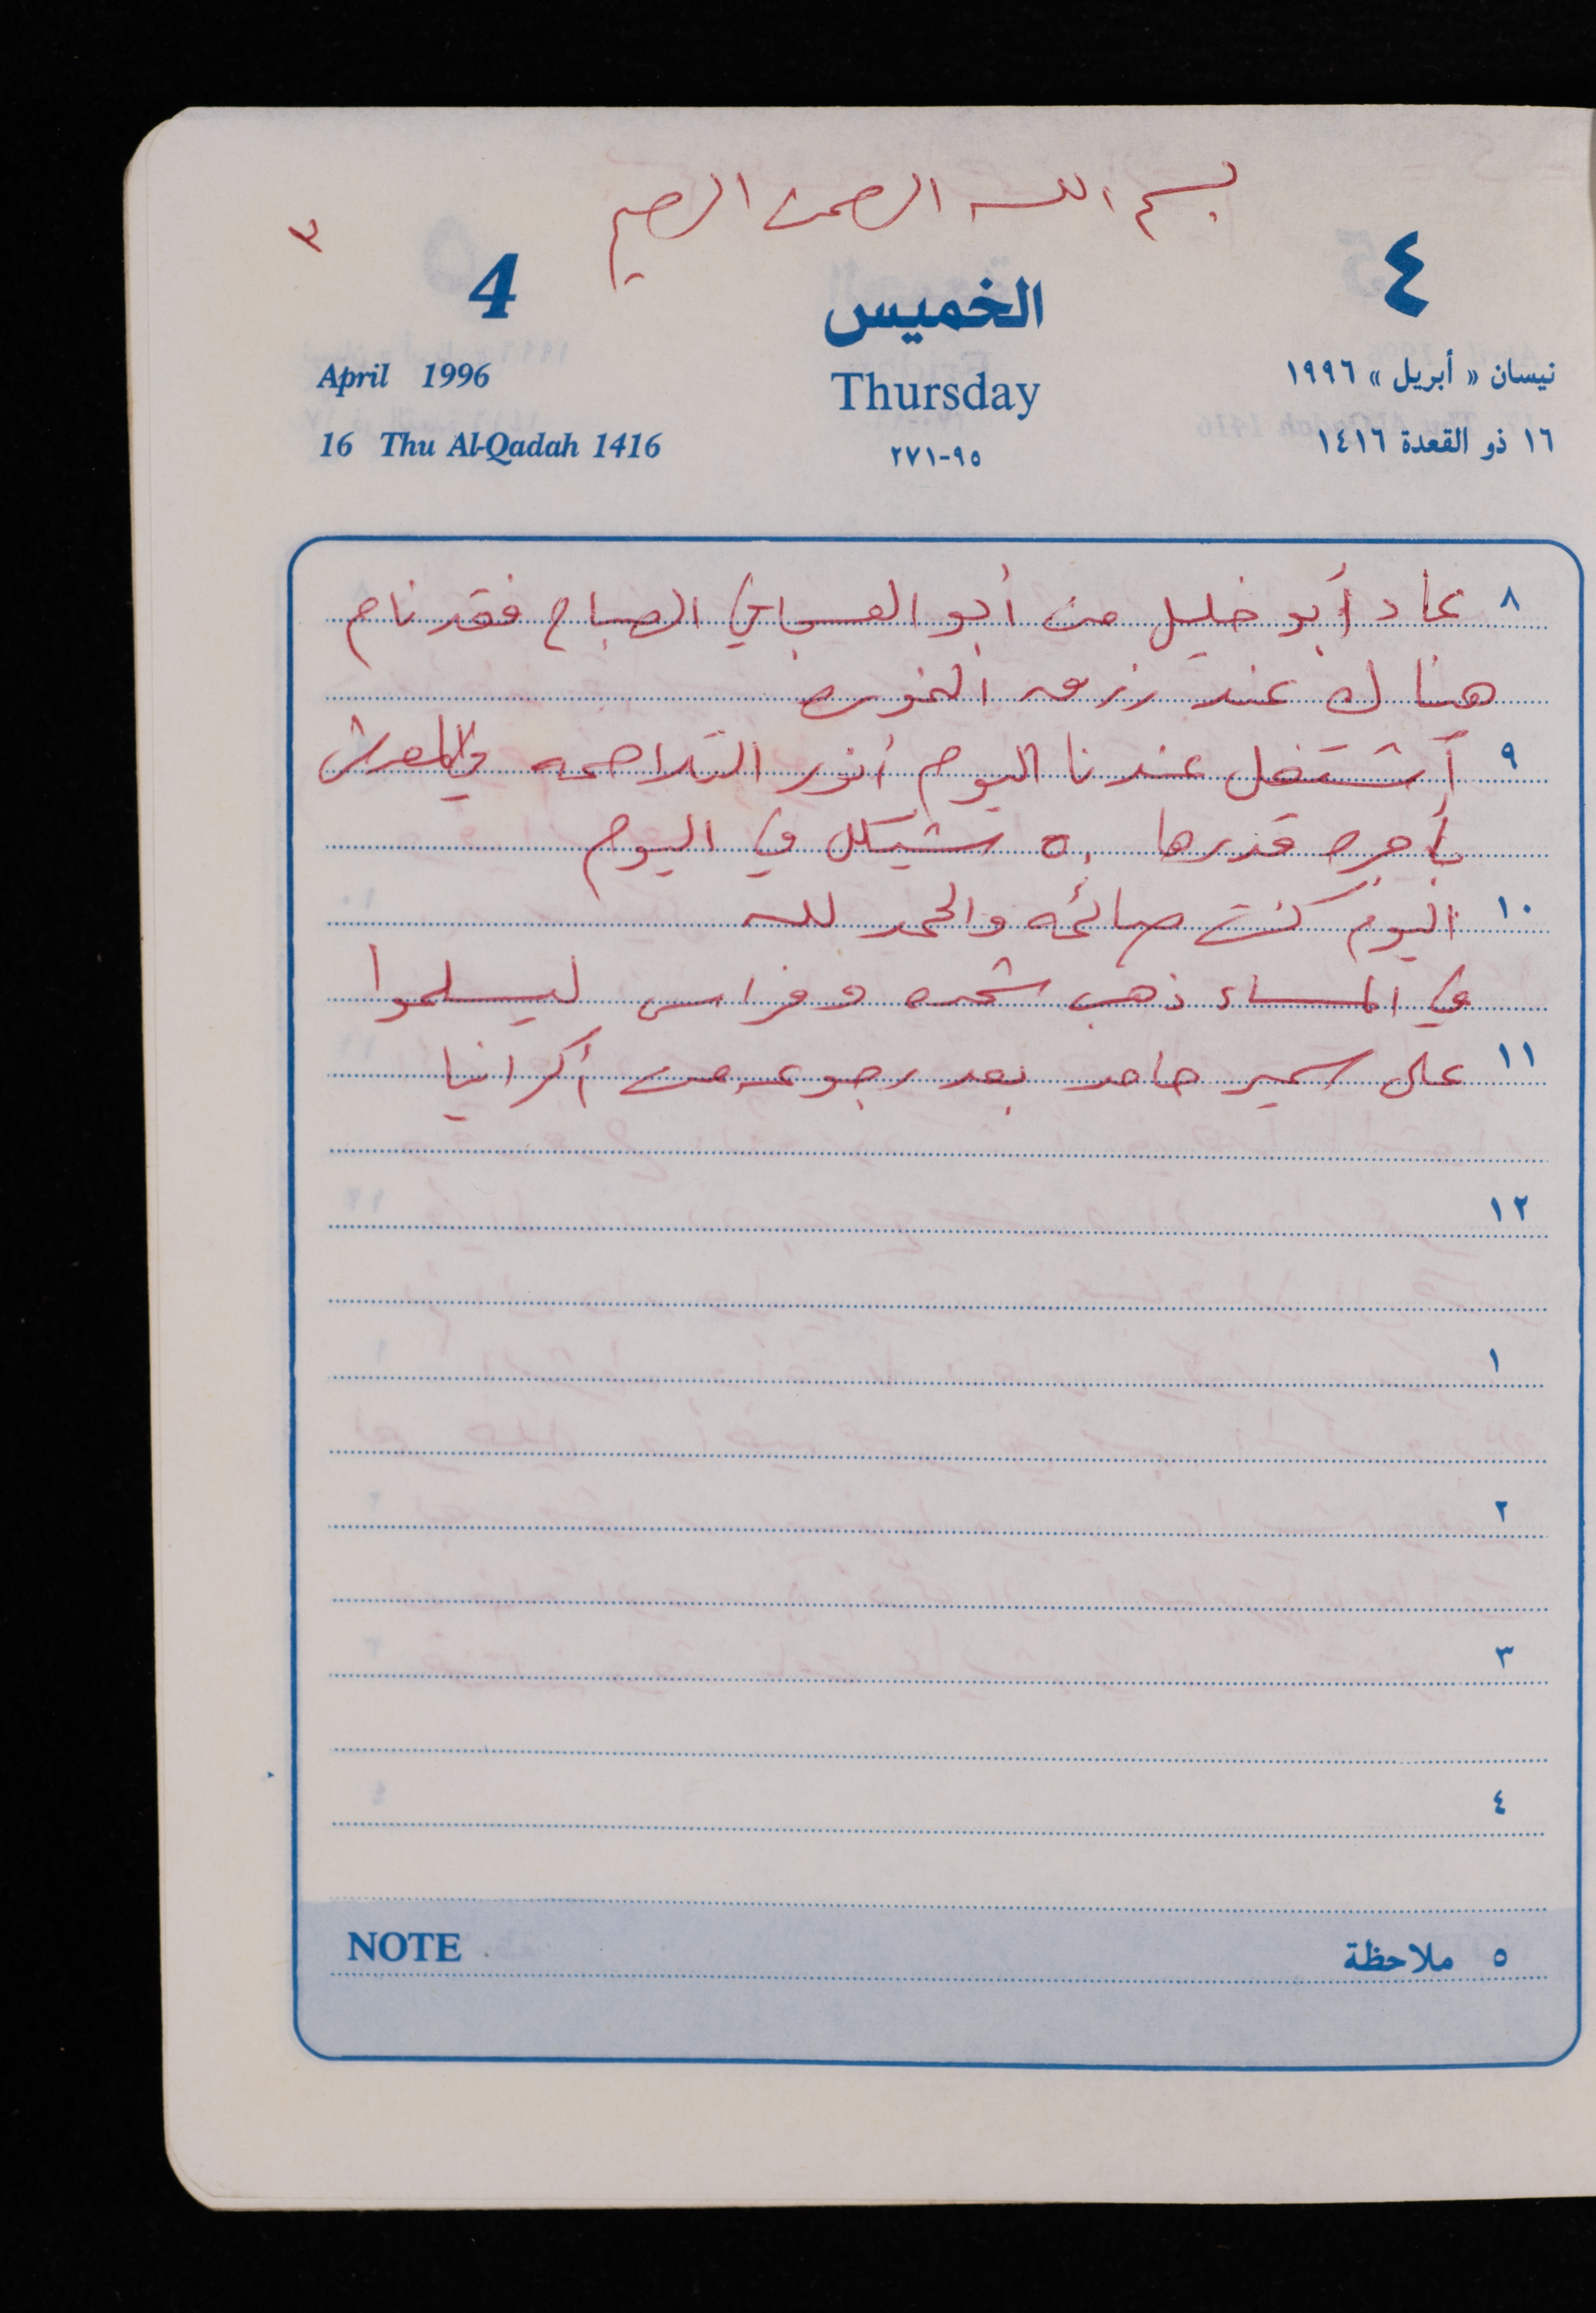 بسم الله الرحمن الرحيم
٣
4 الخميس ٤
April 1996 Thursday نيسان « أبريل » ١٩٩٦
16 Thu Al-Qadah 1416 ٩٥-٢٧١ ١٦ ذو القعدة ١٤١٦
٨ عاد أبو خليل من أبو العسجا في الصباح فقد نام
هناك عند رزق الخور
٩ أشتغل عندنا اليوم أنور التلاحمه
بأجره قدرها ٥٠ شيكل في اليوم
١٠ اليوم كنت صائمه والحمد لله
في المساء ذهب شحده وفراس ليسلموا
١١ على سمير حامد بعد رجوعه من أكرانيا
١٢
١
٢
٣
٤
NOTE ٥ ملاحظة